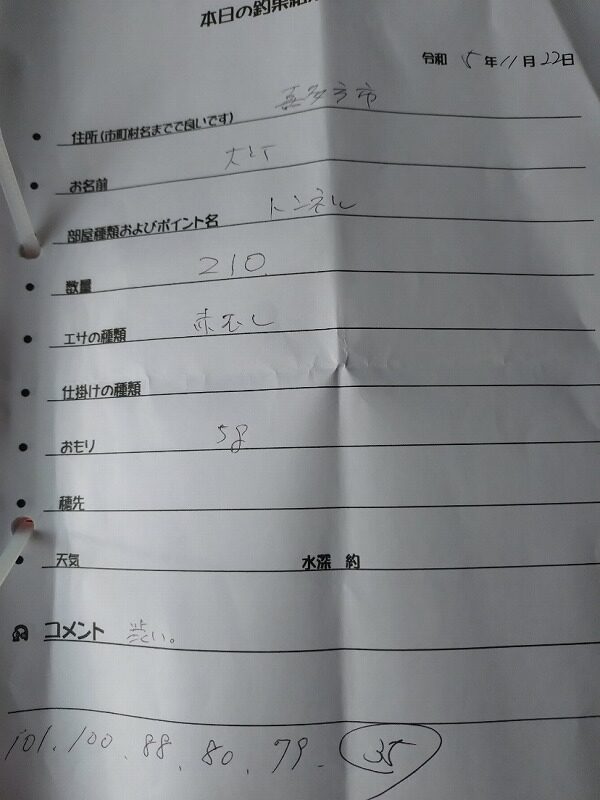 本日の釣果
令和 5年11月22日
住所(市町村名までで良いです) 喜多方市
お名前
部屋種類およびポイント名 トンネル
数量 210
エサの種類 赤むし
仕掛けの種類
おもり 5g
穂先
天気 水深 約
コメント 渋い。
101. 100. 88. 80. 79. 35